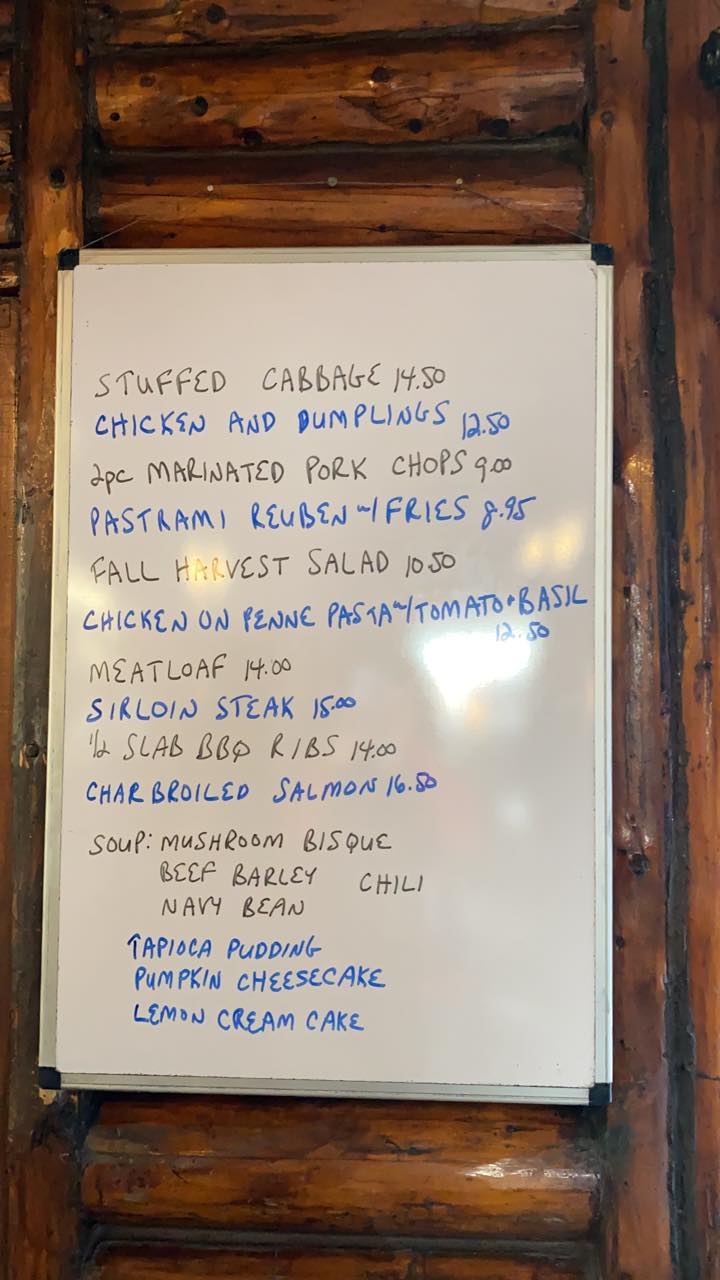 STUFFED CABBAGE 14.50
CHICKEN AND DUMPLINGS 12.50
2pc MARINATED PORK CHOPS 9.00
PASTRAMI REUBEN w/ FRIES 8.95
FALL HARVEST SALAD 10.50
CHICKEN ON PENNE PASTA w/TOMATO + BASIL
12.50
MEATLOAF 14.00
SIRLOIN STEAK 15.00
1/2 SLAB BBQ RIBS 14.00
CHARBROILED SALMON 16.50
SOUP: MUSHROOM BISQUE
BEEF BARLEY CHILI
NAVY BEAN
TAPIOCA PUDDING
PUMPKIN CHEESECAKE
LEMON CREAM CAKE